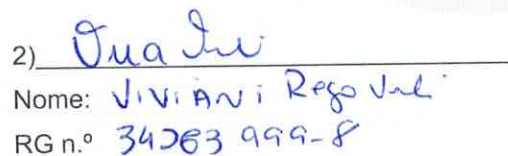 2)
Nome: Viviani Rego
RG n.º 34263 999-8